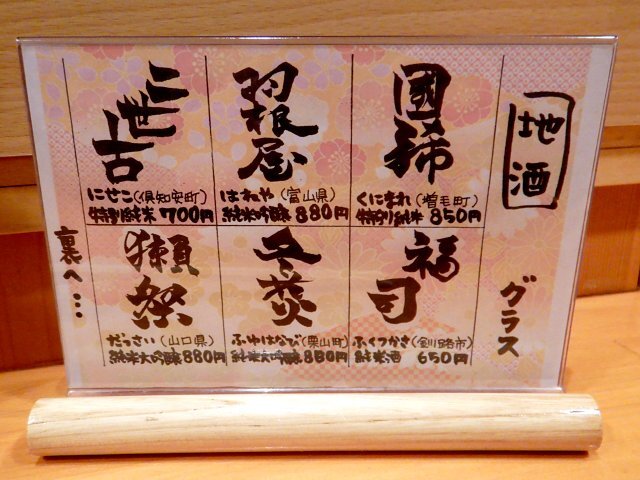 地酒
グラス
國稀
くにまれ(増毛町)
特別純米 850円
羽根屋
はねや(富山県)
純米吟醸 880円
二世古
にせこ(倶知安町)
特別純米 700円
福司
ふくつかさ(釧路市)
純米酒 650円
冬花火
ふゆはなび(栗山町)
純米大吟醸 880円
獺祭
だっさい(山口県)
純米大吟醸 880円
裏へ…